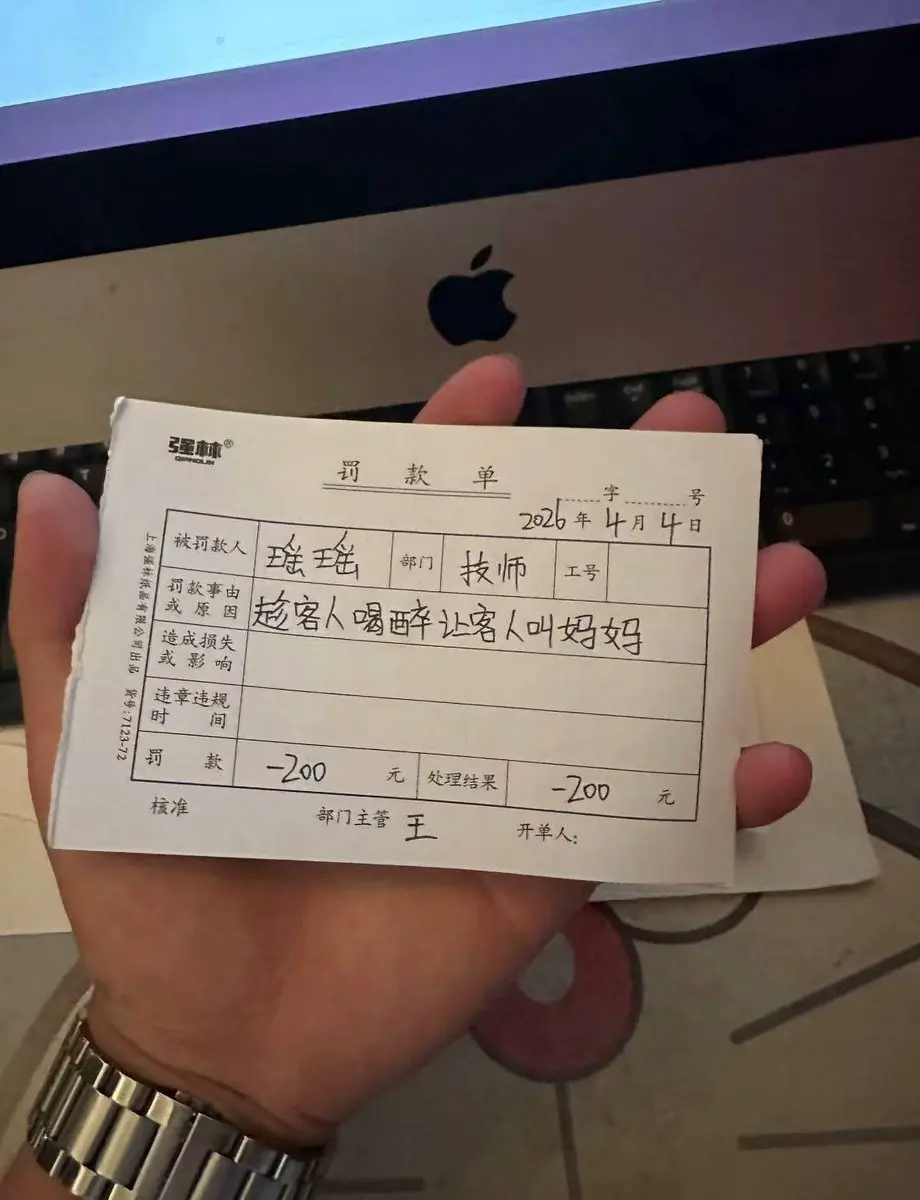 强林®
QIANGLIN
罚 款 单
字 号
2026 年 4 月 4 日
被罚款人 瑶瑶 部门 技师 工号
罚款事由或原因 趁客人喝醉让客人叫妈妈
造成损失或影响
违章违规时间
罚 款 -200 元 处理结果 -200 元
核准 部门主管 王 开单人:
上海强林纸品有限公司出品 货号:7123-72